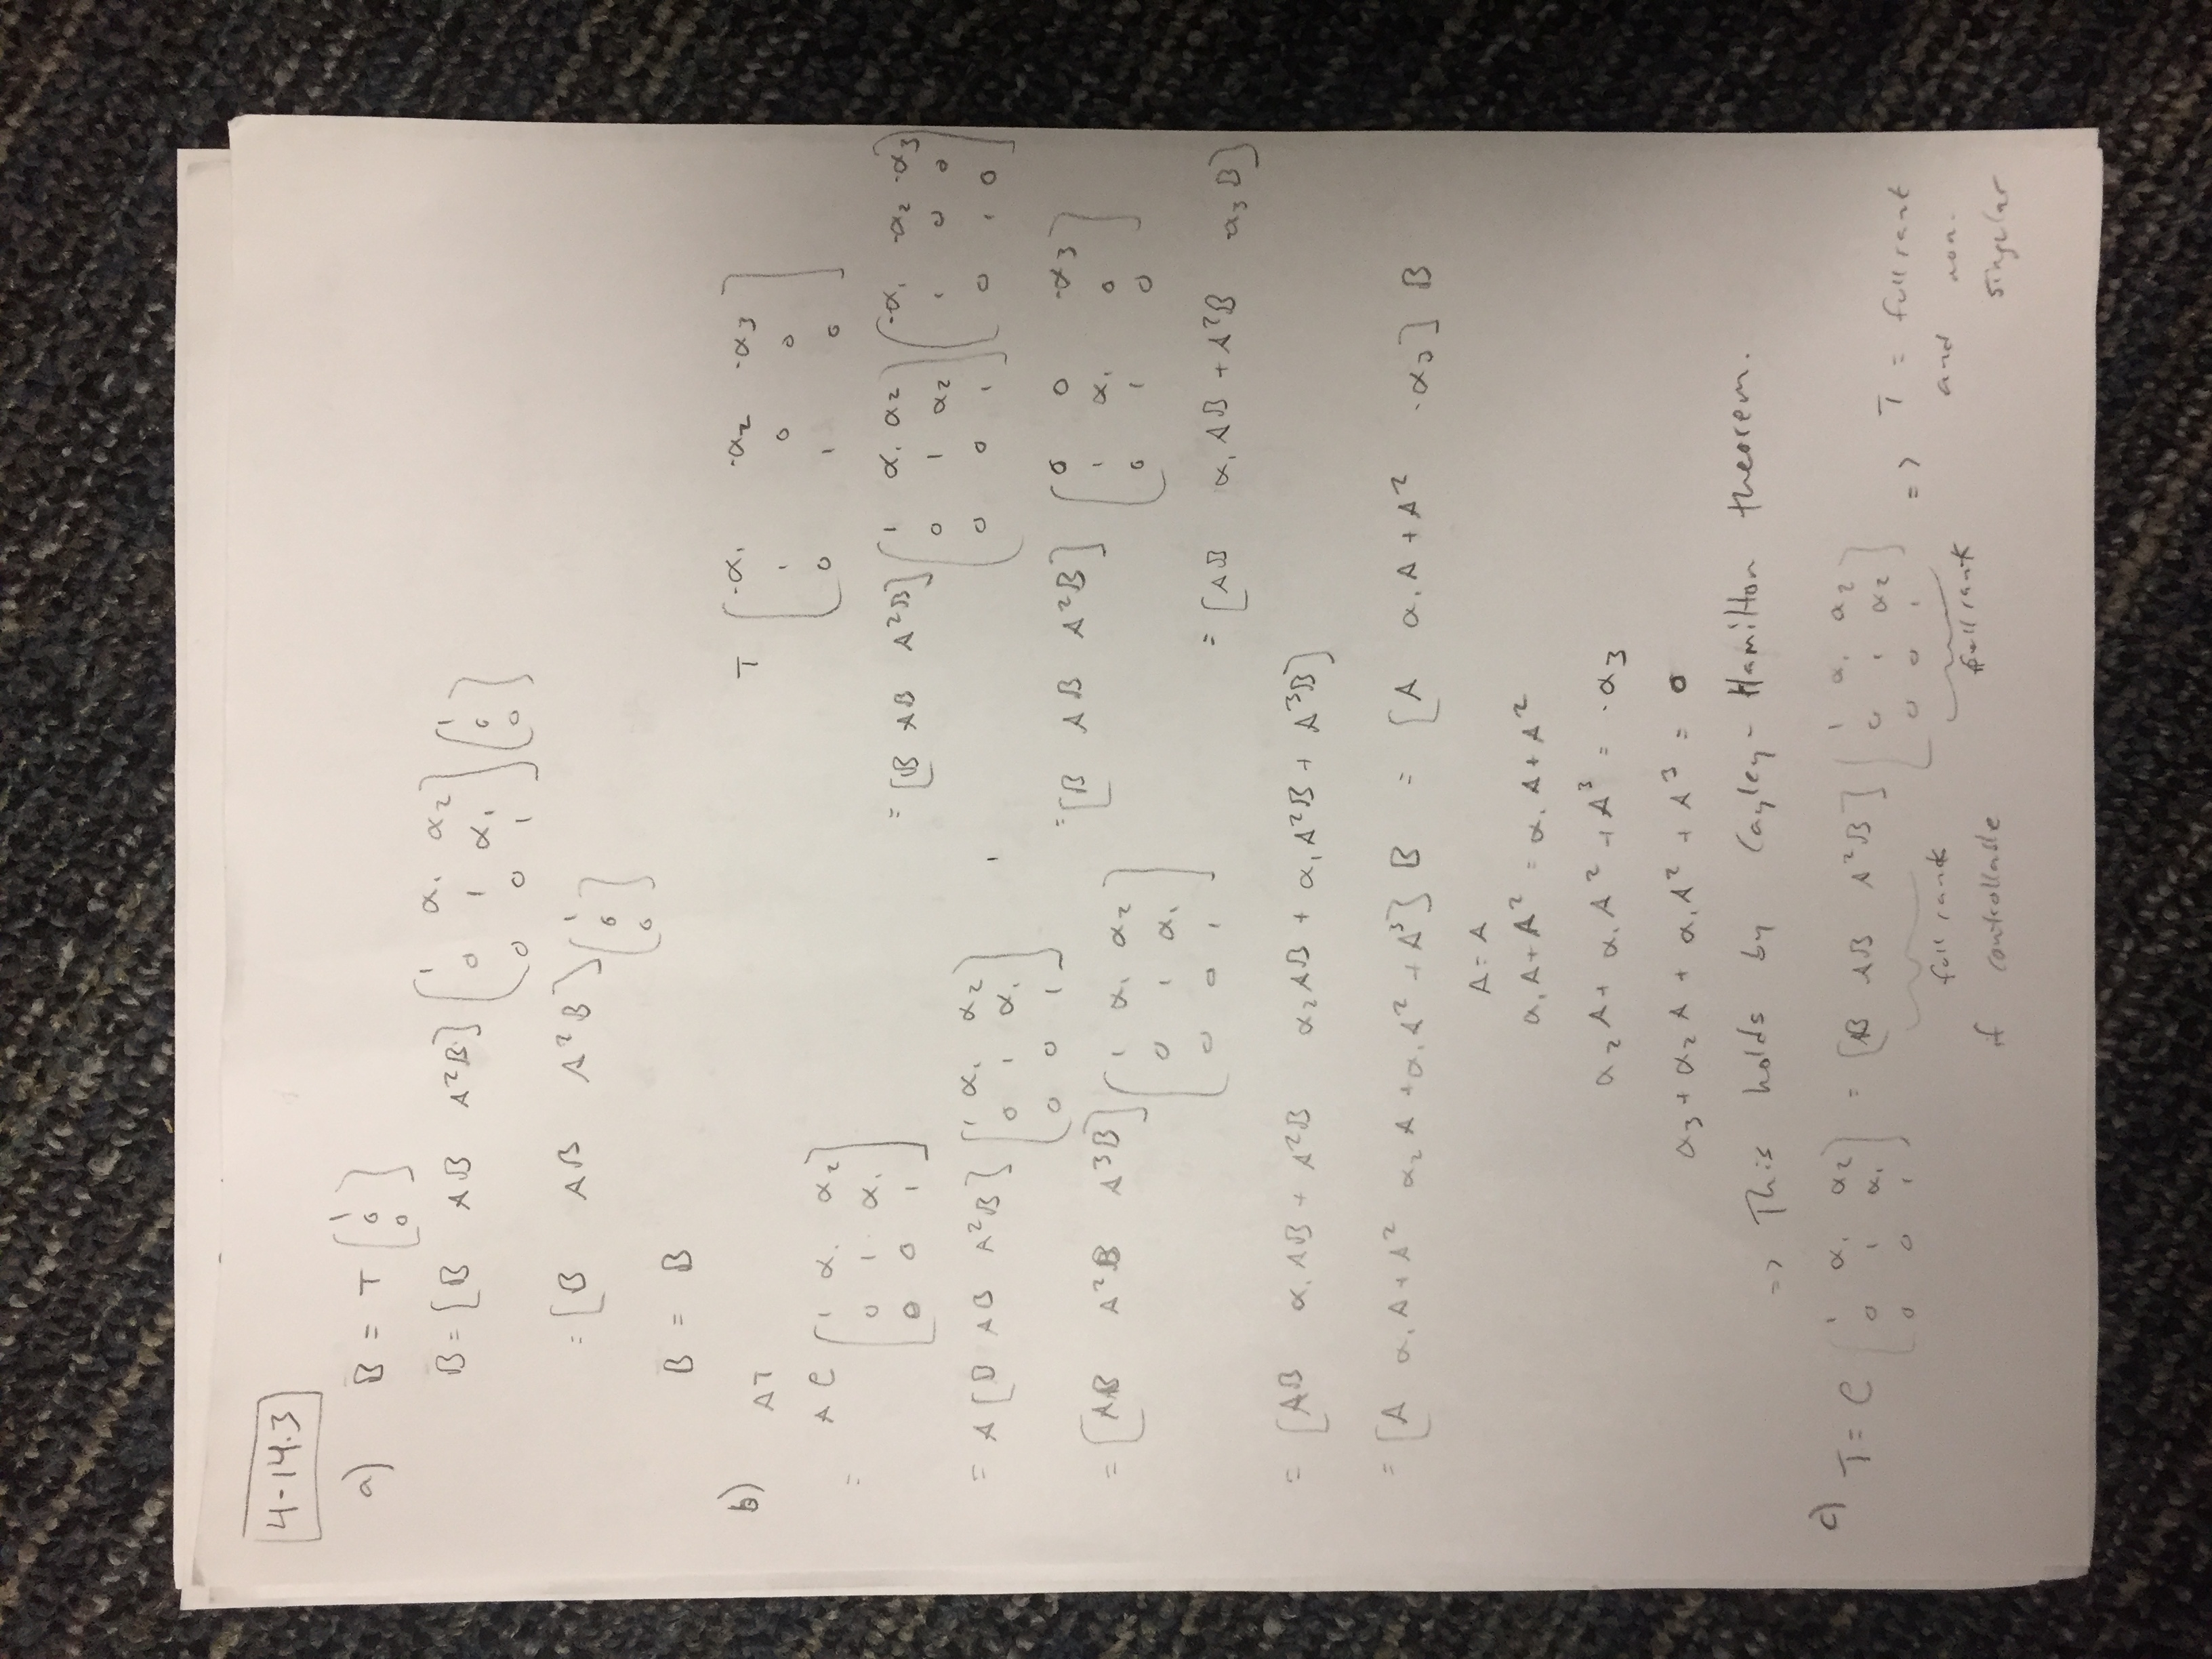 4-14.3
a) B = T [1 0 0]
B = [B AB A²B] [1 α₁ α₂
0 1 α₁
0 0 1] [1 0 0]
= [B AB A²B] [1 0 0]
B = B
b) AT
= A C [1 α₁ α₂
0 1 α₁
0 0 1]
= A [B AB A²B] [1 α₁ α₂
0 1 α₁
0 0 1]
= [AB A²B A³B] [1 α₁ α₂
0 1 α₁
0 0 1]
T [-α₁ -α₂ -α₃
1 0 0
0 1 0]
= [B AB A²B] [1 α₁ α₂
0 1 α₂
0 0 1] [-α₁ -α₂ -α₃
1 0 0
0 1 0]
= [B AB A²B] [0 0 -α₃
1 α₁ 0
0 1 0]
= [AB α₁AB + A²B -α₃B]
= [AB α₁AB + A²B α₂AB + α₁A²B + A³B]
= [A α₁A + A² α₂A + α₁A² + A³] B = [A α₁A + A² -α₃] B
A = A
α₁A + A² = α₁A + A²
α₂A + α₁A² + A³ = -α₃
α₃ + α₂A + α₁A² + A³ = 0
=> This holds by Cayley-Hamilton theorem.
c) T = C [1 α₁ α₂
0 1 α₁
0 0 1] = [B AB A²B] [1 α₁ α₂
0 1 α₂
0 0 1] => T = full rank
and non-
singular
full rank
if controllable
full rank